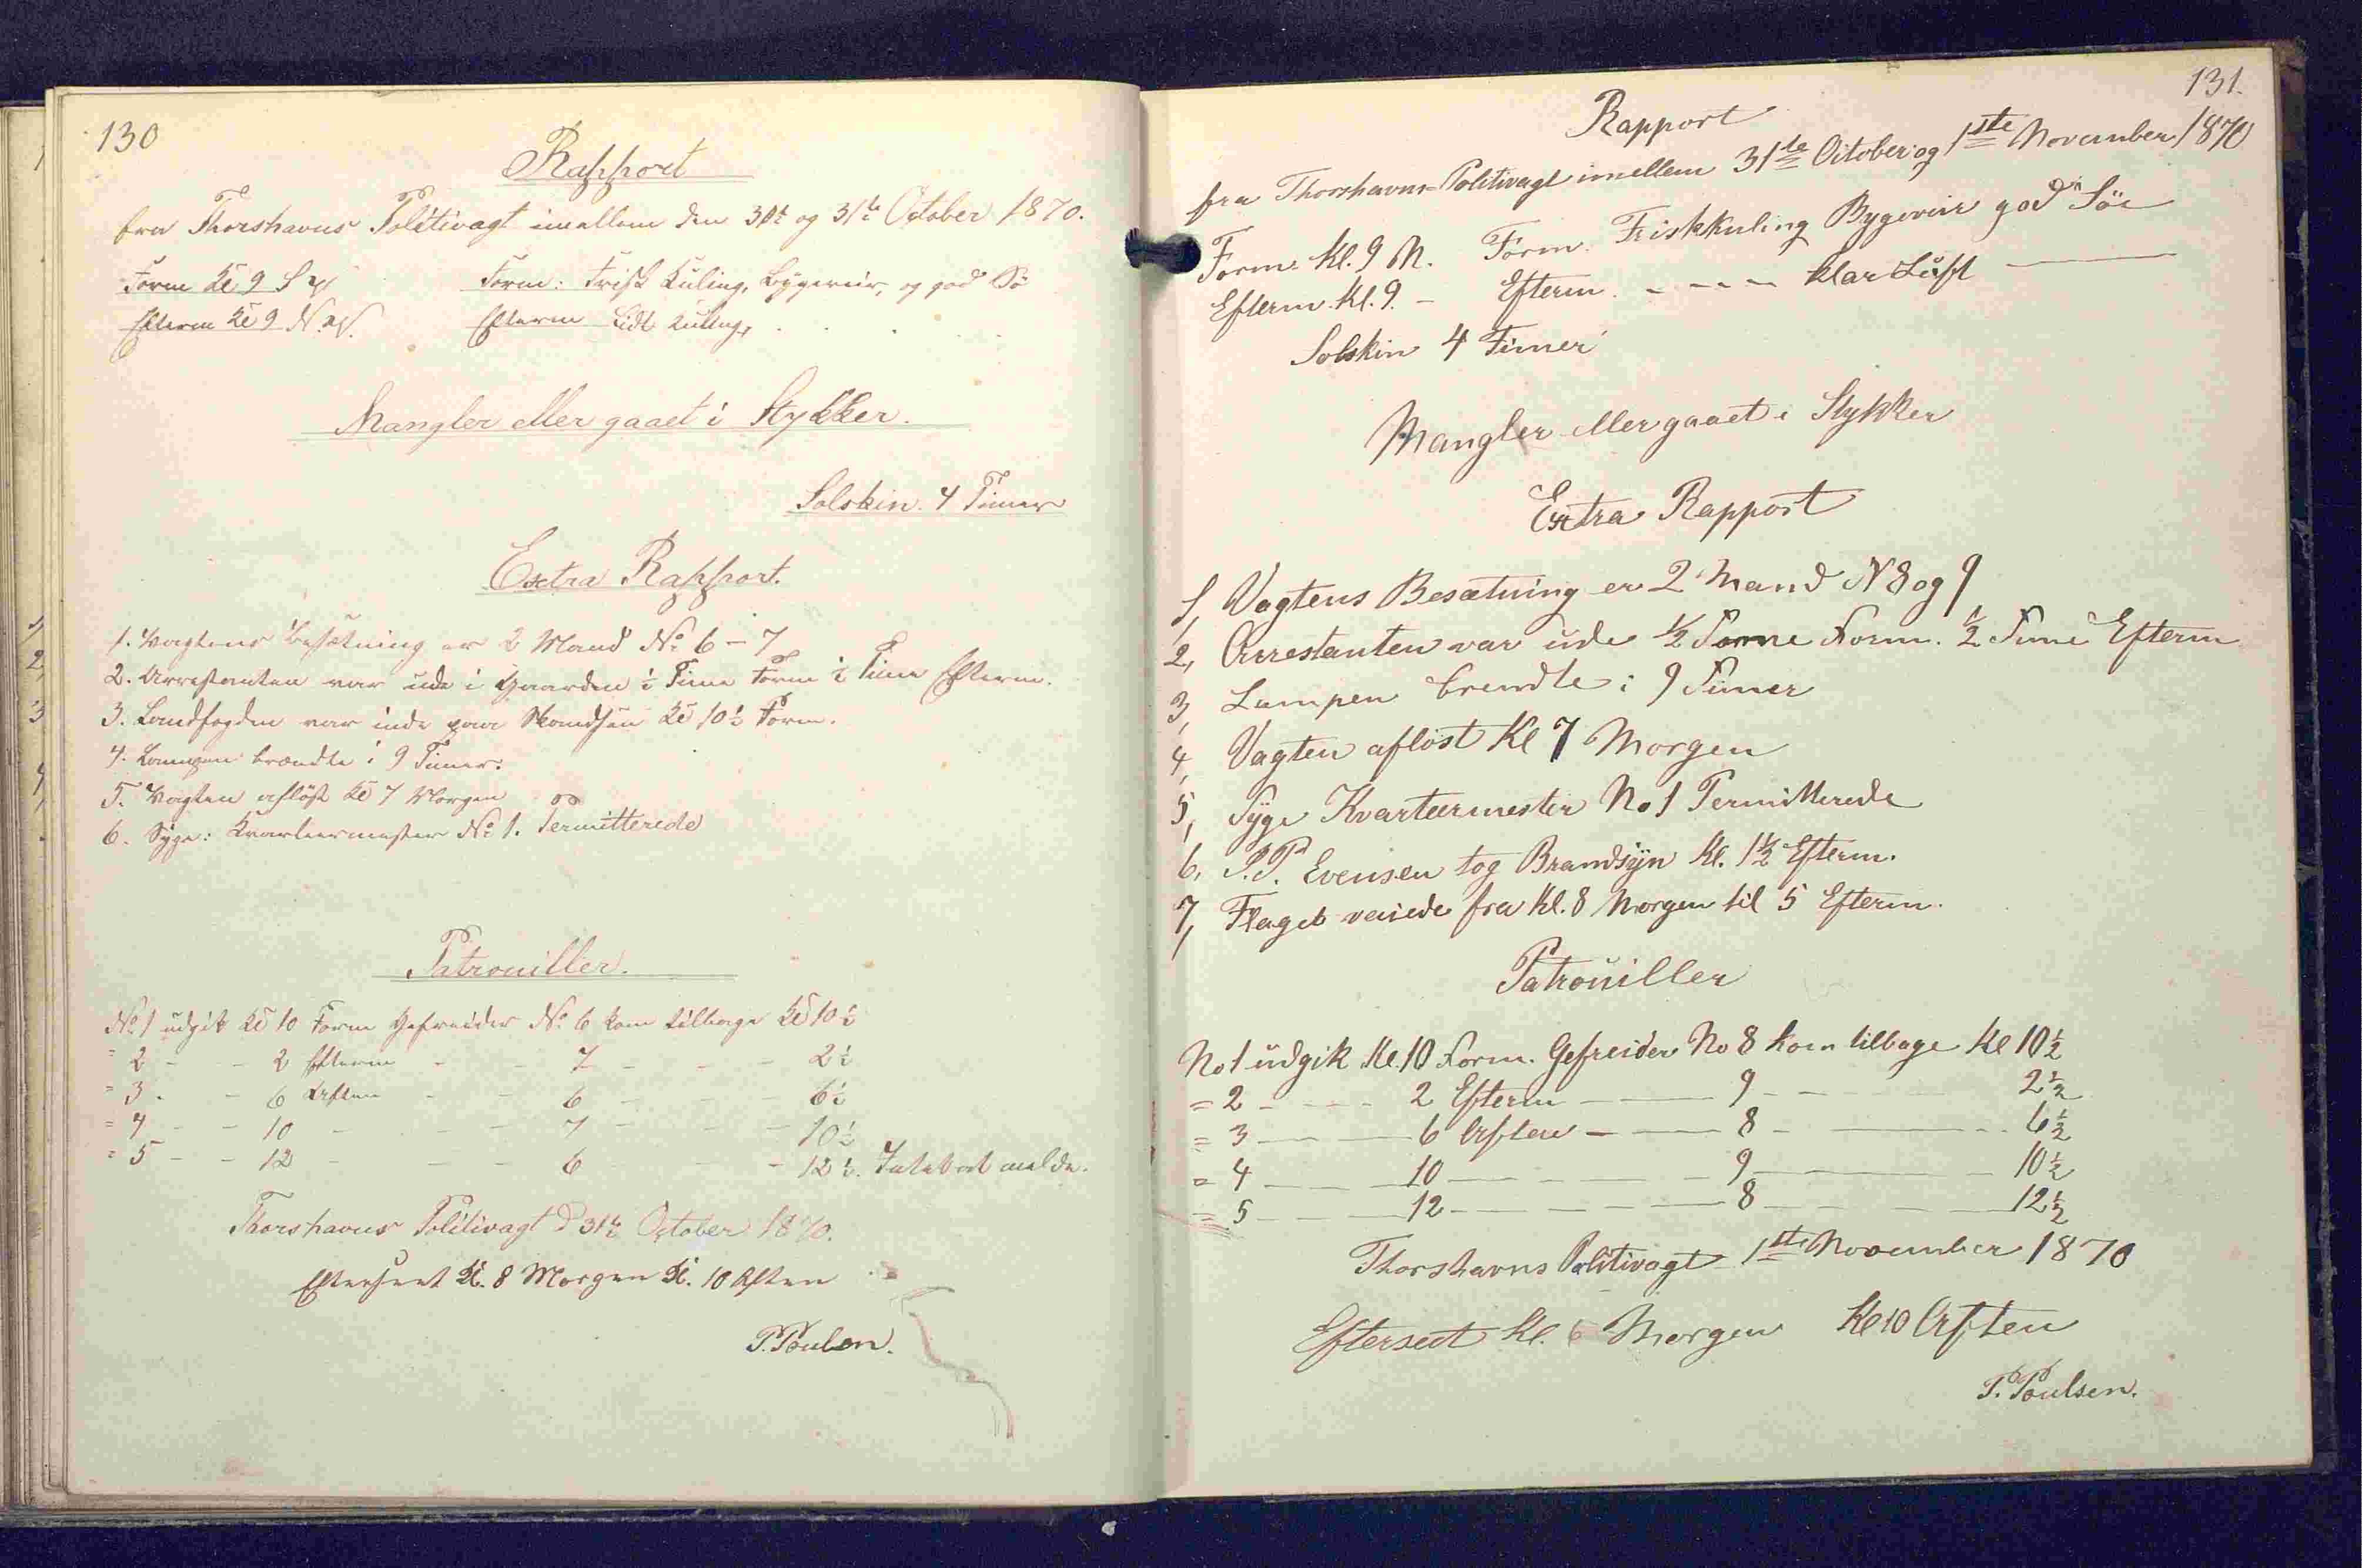 130
Rapport
fra Thorshavns Politivagt imellem den 30te og 31te October 1870.
Form Kl 9 S V Form: Frisk Kuling, Bygeveir, og god Sö
Efterm Kl 9 N.V. Efterm Lidt Kuling,
Mangler eller gaaet i Stykker.
Solskin. 4 Timer
Extra Rapport.
1. Vagtens Besætning er 2 Mand No 6 - 7
2. Arrestanten var ude i Gaarden ½ Time Form ½ Time Efterm.
3. Landfogden var inde paa Skandsen Kl 10½ Form.
4. Lampen brændte i 9 Timer.
5. Vagten aflöst Kl 7 Morgen
6. Syge: Kvarteermester No 1. Permitterede
Patrouiller.
No 1 udgik Kl 10 Form Gefreider No 6 kom tilbage Kl 10½
" 2 - - 2 Efterm - - 7 - - - 2½
" 3 - - 6 Aften - - 6 - - - 6½
" 4 - - 10 - - - 7 - - - 10½
" 5 - - 12 - - - 6 - - - 12½. Intet at melde.
Thorshavns Politivagt d 31te October 1870.
Efterseet Kl. 8 Morgen Kl. 10 Aften
P. Poulsen.
131.
Rapport
fra Thorshavns Politivagt imellem 31te October og 1ste November 1870
Form. Kl. 9 N. Form. Friskkuling Bygeveir god Söe
Efterm. Kl. 9. - Efterm. - - - klar Luft ——
Solskin 4 Timer
Mangler eller gaaet i Stykker
Extra Rapport
1, Vagtens Besætning er 2 Mand N 8 og 9
2, Arrestanten var ude ½ Time Form. ½ Time Efterm
3, Lampen brendte i 9 Timer
4, Vagten aflöst Kl 7 Morgen
5, Syge Kvarteermester No 1 Permitterede
6, P.P. Evensen tog Brandsyn Kl. 1½ Efterm.
7, Flaget veiede fra Kl. 8 Morgen til 5 Efterm.
Patrouiller
No 1 udgik Kl. 10 Form. Gefreider No 8 kom tilbage Kl 10½
= 2 - - - 2 Efterm — — 9 - - - 2½
= 3 — — 6 Aften — — 8 - — - 6½
= 4 — — 10 — - - 9 — — 10½
= 5 — — 12 - - - 8 — - — 12½
Thorshavns Politivagt 1ste November 1870
Efterseet Kl. 6 Morgen Kl 10 Aften
P. Poulsen.